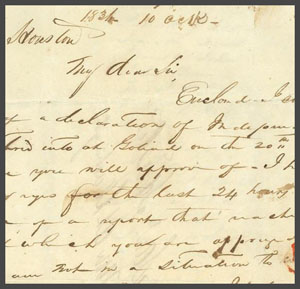 1836 10 oclk
Houston
My dear Sir,
Enclosed I
a declaration of Indepen
tered into at Goliad on the 20th
you will approve of I h
eyes for the last 24 hours
up a report that reache
which you are appriz
am not in a situation to